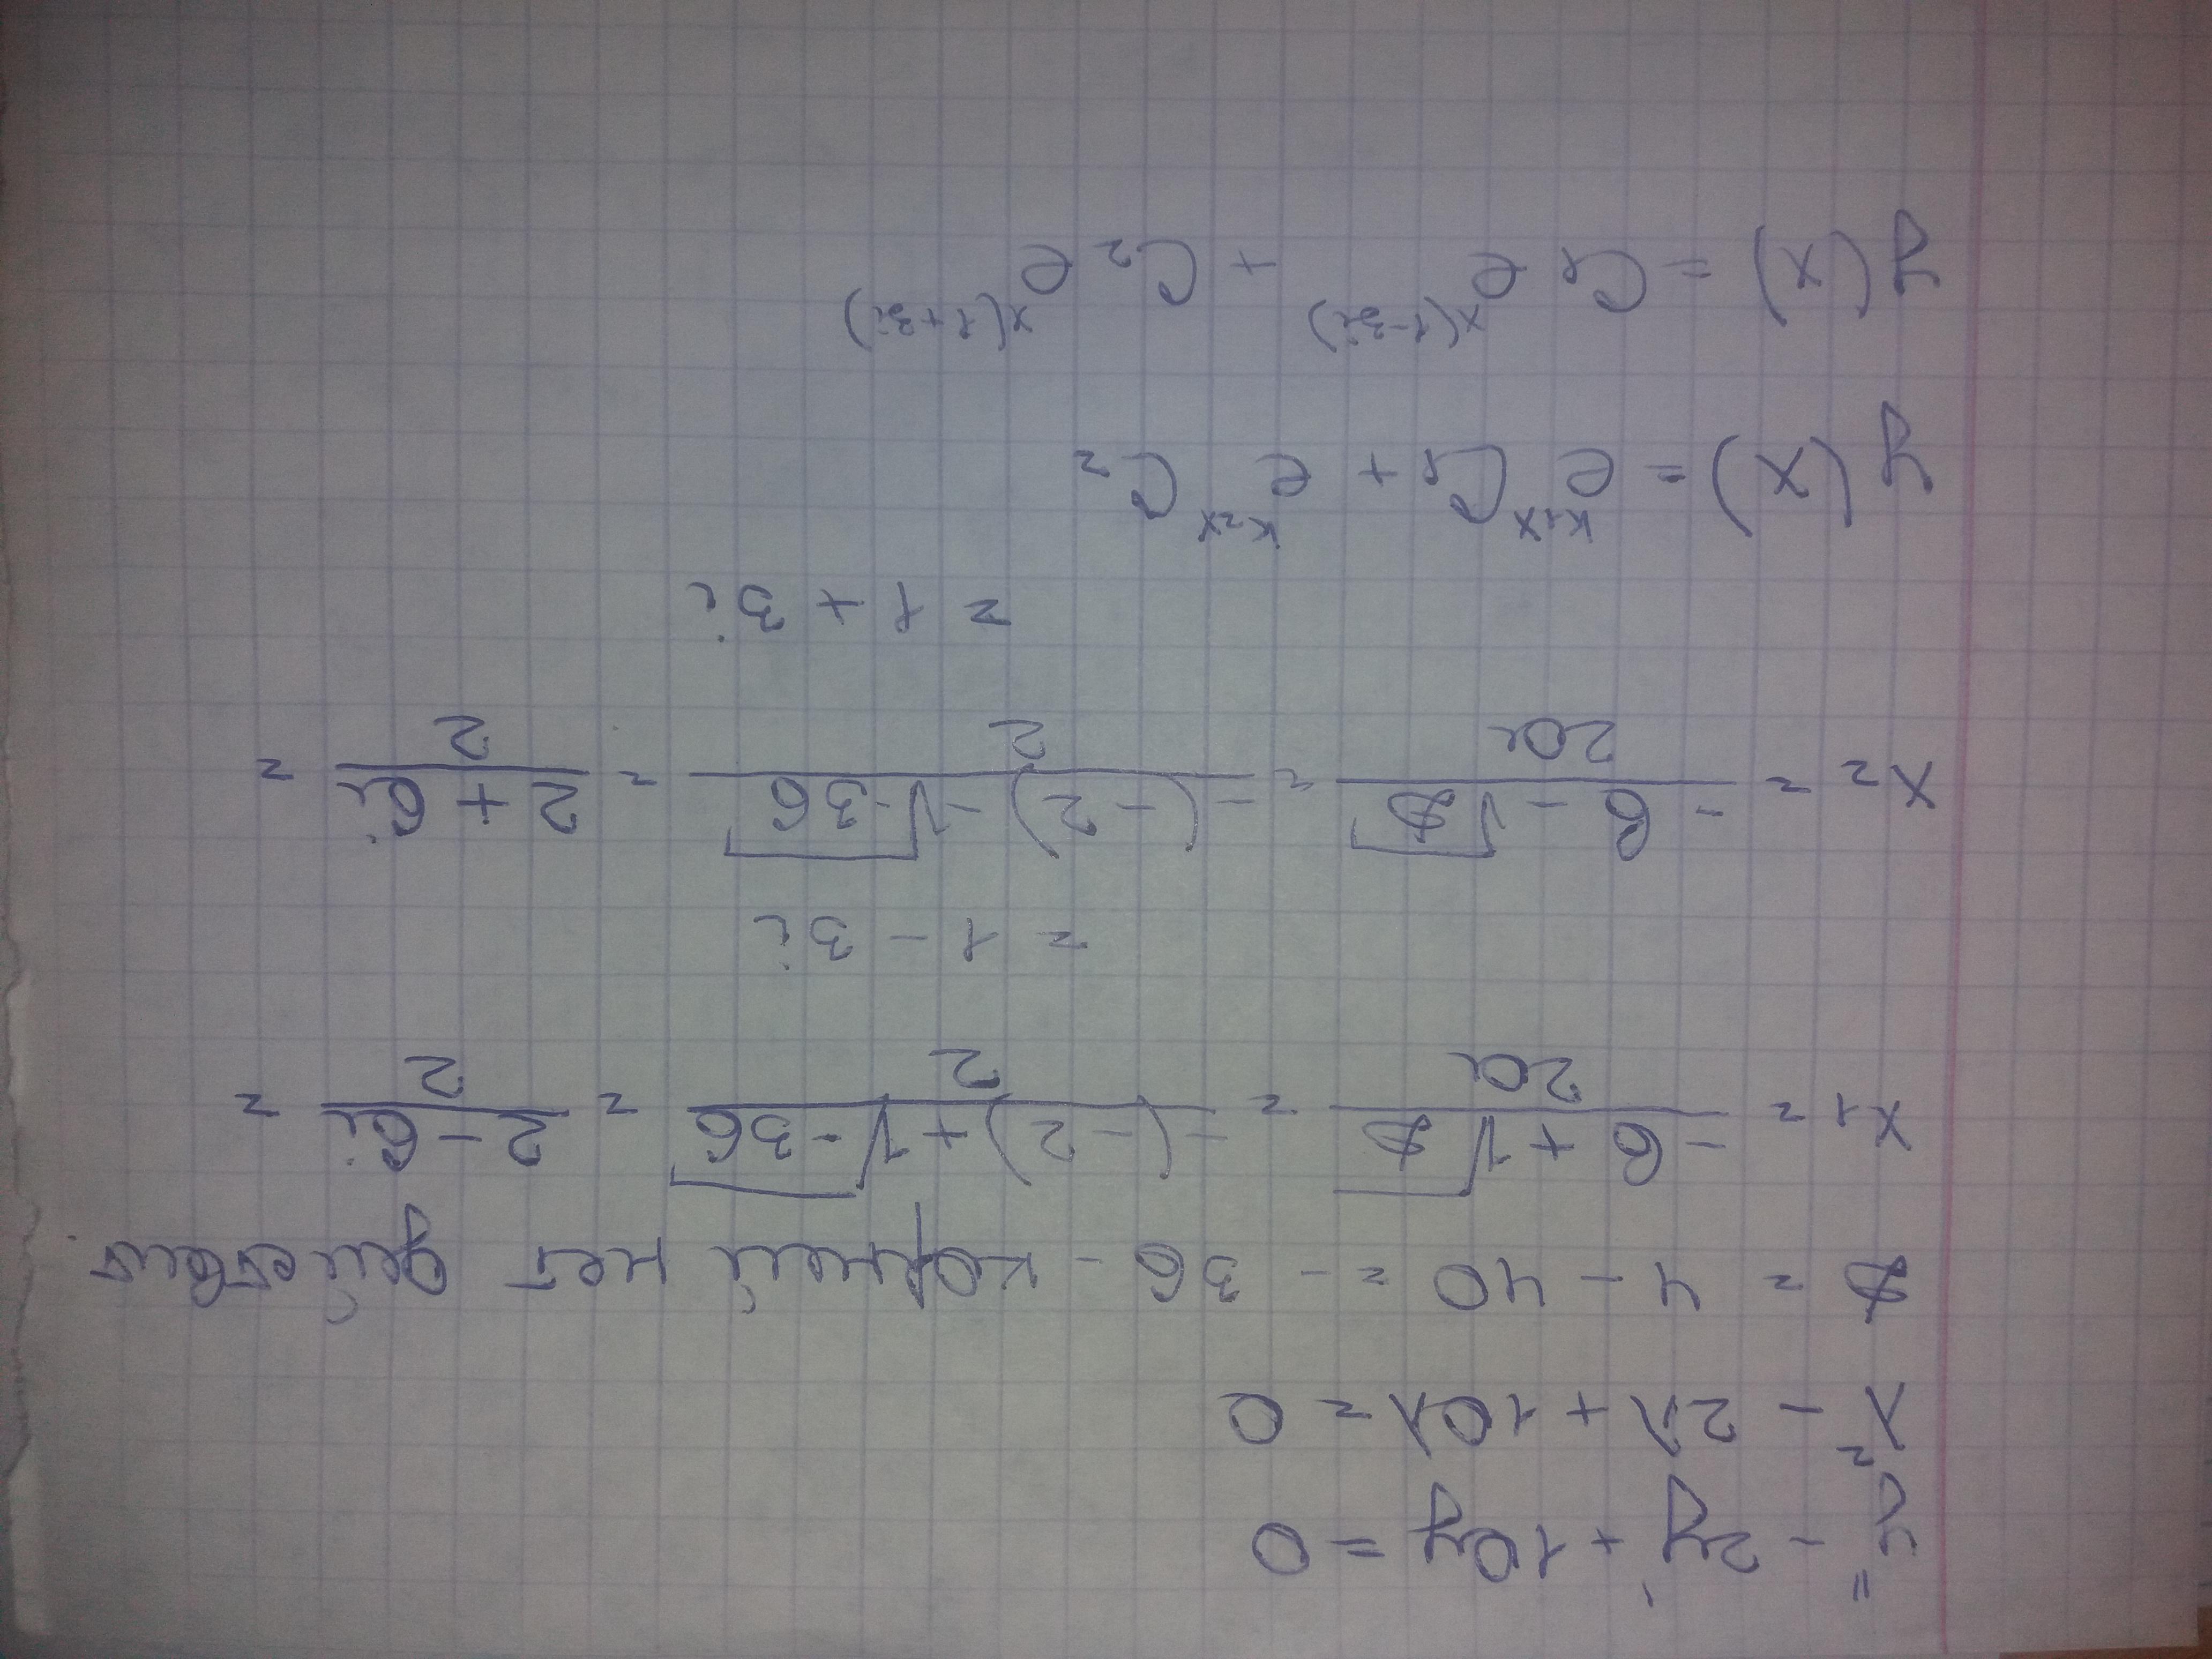 y'' - 2y' + 10y = 0
λ² - 2λ + 10λ = 0
D = 4 - 40 = - 36 - корней нет действит.
x1 = (-b + √D)/(2a) = (-(-2) + √-36)/2 = (2 - 6i)/2 =
= 1 - 3i
x2 = (-b - √D)/(2a) = (-(-2) - √-36)/2 = (2 + 6i)/2 =
= 1 + 3i
y(x) = e^(k1x) C1 + e^(k2x) C2
y(x) = C1 e^(x(1-3i)) + C2 e^(x(1+3i))